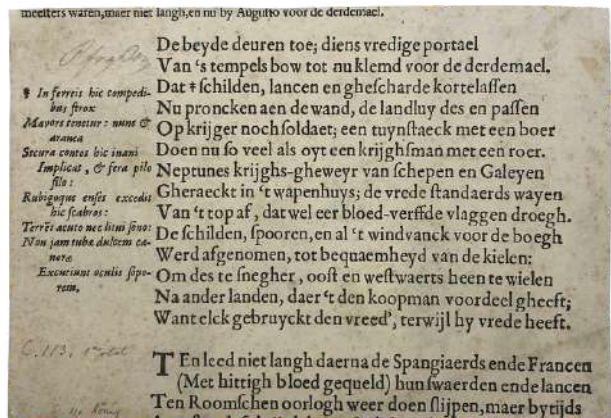 meesters waren,maer niet langh,en nu by Augusto voor de derdemael.
De beyde deuren toe; diens vredige portael
Van 's tempels bow tot nu klemd voor de derdemael.
Dat ‡ schilden, lancen en ghescharde kortelassen
Nu proncken aen de wand, de landluy des en passen
Op krijger noch soldaet; een tuynstaeck met een boer
Doen nu so veel als oyt een krijghsman met een roer.
Neptunes krijghs-gheweyr van schepen en Galeyen
Gheraeckt in 't wapenhuys; de vrede standaerds wayen
Van 't top af, dat wel eer bloed-verffde vlaggen droegh.
De schilden, spooren, en al 't windvanck voor de boegh
Werd afgenomen, tot bequaemheyd van de kielen:
Om des te snegher, oost en westwaerts heen te wielen
Na ander landen, daer 't den koopman voordeel gheeft;
Want elck gebruyckt den vreed', terwijl hy vrede heeft.
‡ In ferreis hic compedi-
bus strox
Mavors tenetur: nunc &
aranea
Secura contos hic inani
Implicat, & fera pilo
filo:
Rubigoque enses excedit
hic scabros:
Terrēt acuto nec litui sono:
Non jam tubæ dulcem ca-
noræ
Excutiunt oculis sopo-
rem,
C. 113.
TEn leed niet langh daerna de Spangiaerds ende Francen
(Met hittigh bloed gequeld) hun swaerden ende lancen
Ten Roomschen oorlogh weer doen slijpen, maer bytijds